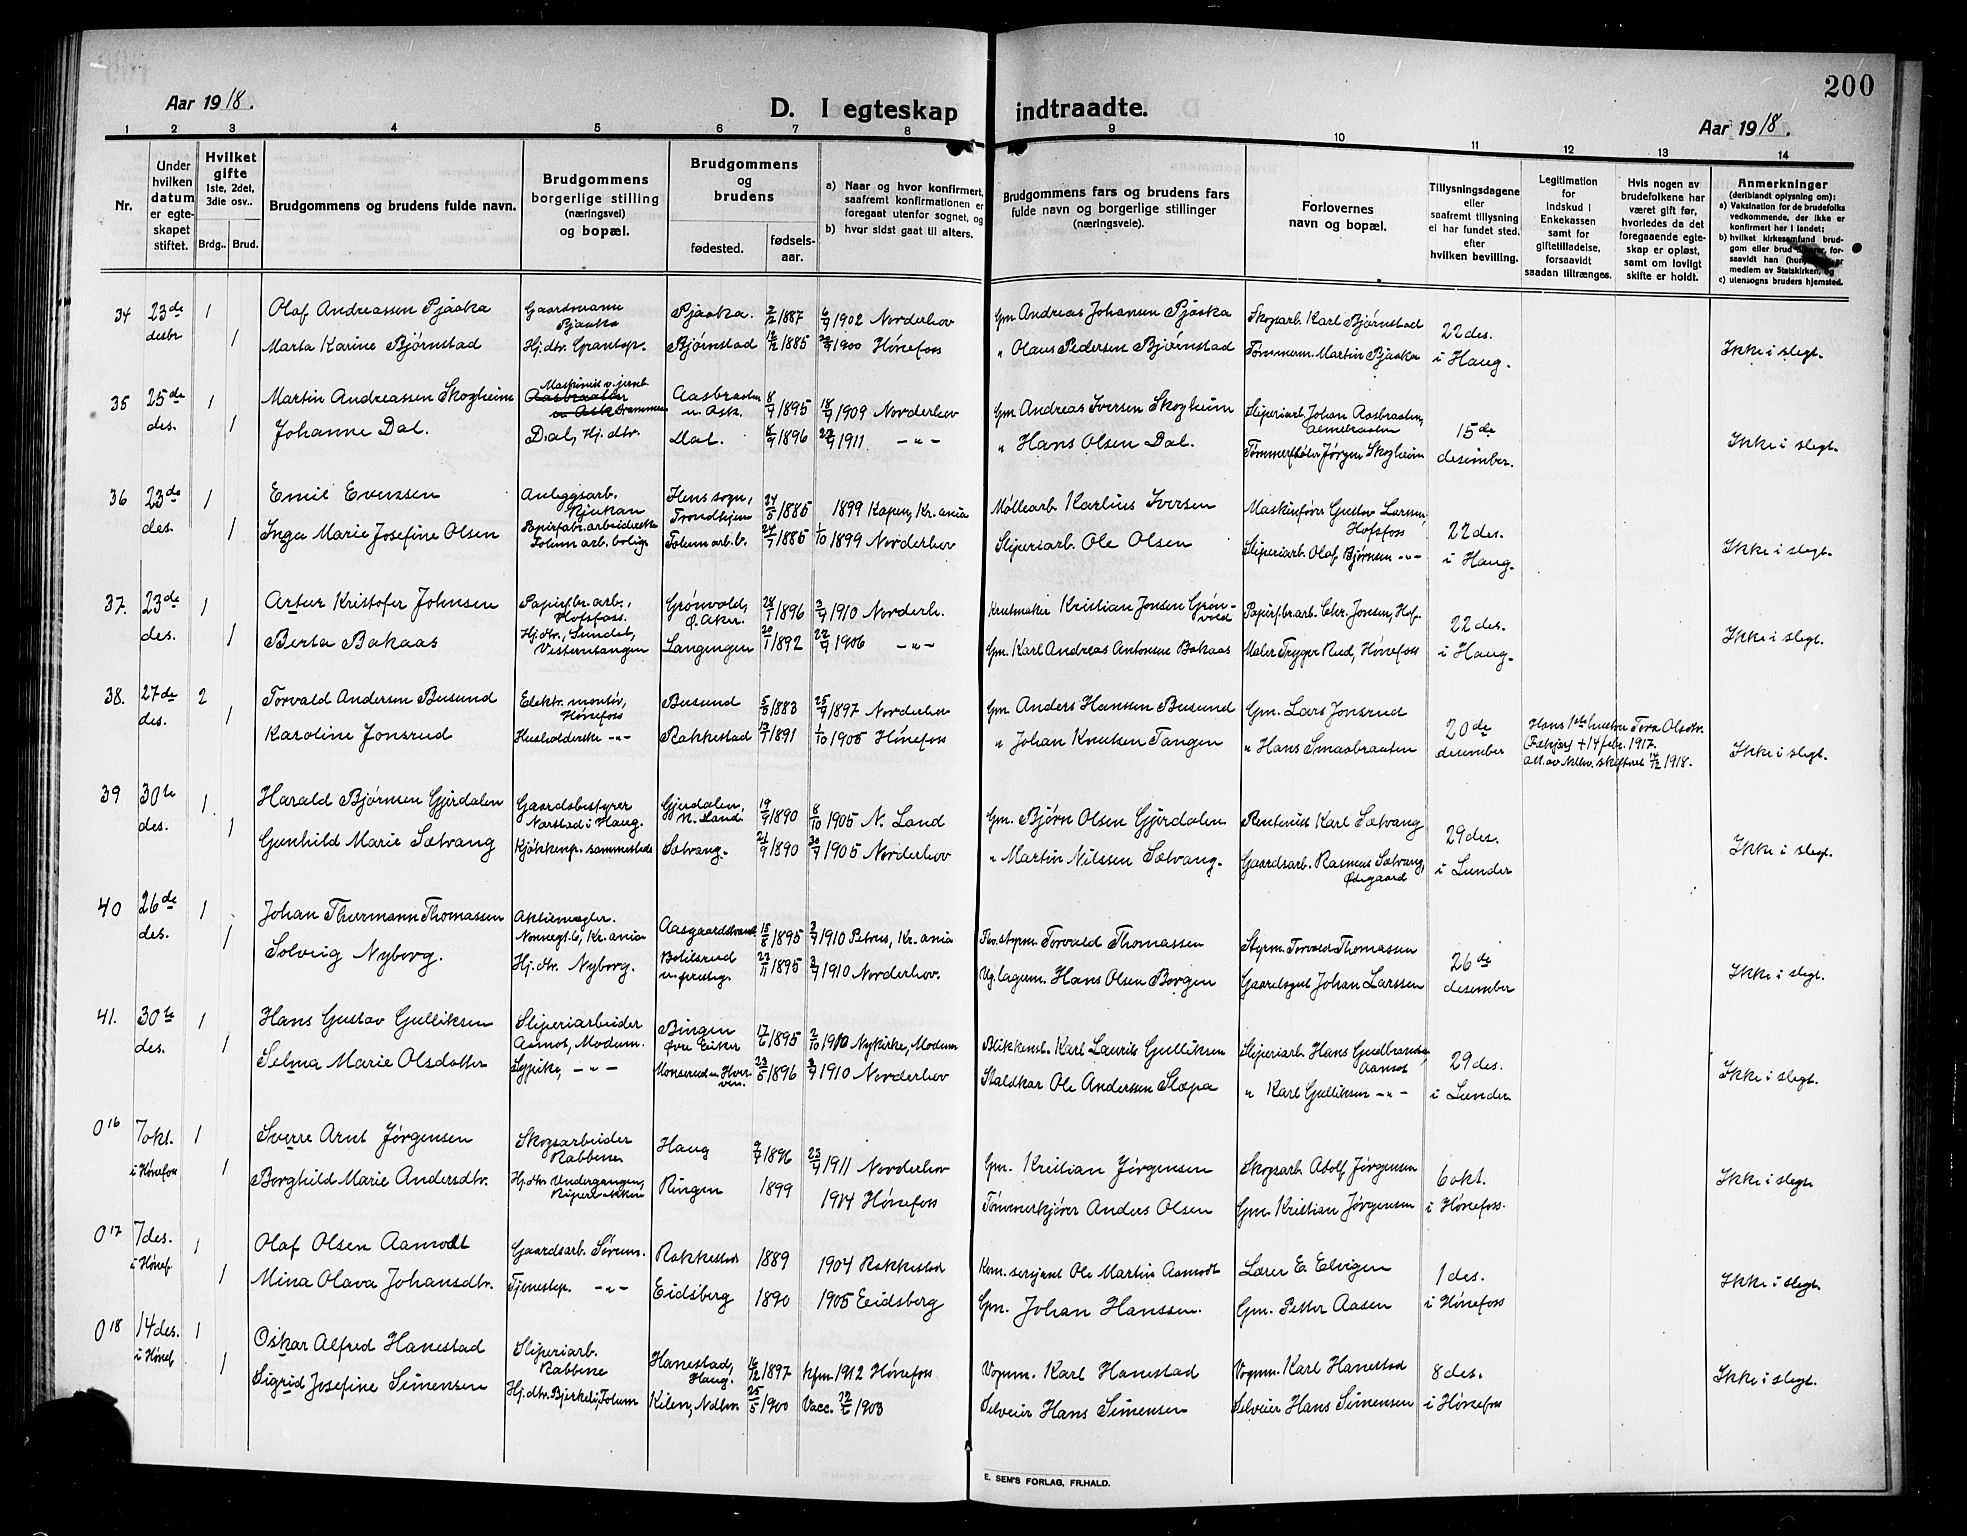 200
Aar 1918.
D. I egteskap indtraadte.
Aar 1918.
1 2 3 4 5 6 7 8 9 10 11 12 13 14
Nr.
Under hvilken datum er egteskapet stiftet.
Hvilket gifte 1ste, 2det, 3die osv..
Brdg.. Brud.
Brudgommens og brudens fulde navn.
Brudgommens borgerlige stilling (næringsvei) og bopæl.
Brudgommens og brudens
fødested.
fødselsaar.
a) Naar og hvor konfirmert, saafremt konfirmationen er foregaat utenfor sognet, og
b) hvor sidst gaat til alters.
Brudgommens fars og brudens fars fulde navn og borgerlige stillinger (næringsveie).
Forlovernes navn og bopæl.
Tillysningsdagene eller saafremt tillysning ei har fundet sted. efter hvilken bevilling.
Legitimation for indskud i Enkekassen samt for giftetilladelse, forsaavidt saadan tiltrænges.
Hvis nogen av brudefolkene har været gift før, hvorledes da det foregaaende egteskap er opløst, samt om lovligt skifte er holdt.
Anmerkninger (deriblandt oplysning om):
a) Vaksination for de brudefolks vedkommende, der ikke er konfirmert her i landet;
b) hvilket kirkesamfund brudgom eller brud tilhører, forsaavidt han (hun) ikke er medlem av Statskirken, og
c) utensogns bruders hjemsted.
34 23de desbr 1 Olaf Andreassen Pjaaka Gaardmann Pjaaka Pjaaka. 2/12 1887 6/9 1902 Norderhov Gm Andreas Johansen Pjaaka Skogsarb. Karl Bjørnstad 22 des. i Haug.
1 Marta Karine Bjørnstad Hj. dtr. Grantop. Bjørnstad 12/12 1885 1900 Hønefoss " Olaus Pedersen Bjørnstad Tømmerm. Martin Pjaaka Ikke i slegt.
35 25de des. 1 Martin Andreassen Skogheim Maskinist v. jernb. Drammen Aasbraaten u. Ask. 8/7 1895 18/9 1909 Norderhov Gm Andreas Iversen Skogheim Sliperiarb. Johan Aasbraaten, Almebraaten 15de desember.
1 Johanne Dal. Dal, Hj. dtr. Dal. 8/9 1896 1911 -"- " Hans Olsen Dal. Tømmerfløter Jørgen Skogheim Ikke i slegt.
36 23de des. 1 Emil Evensen Anleggsarb. Rjukan Ilens sogn, Trondhjem 24/5 1885 1899 Kapen, Kr.ania Møllearb Karlius Iversen Maskinfører Gustav Larsen, Hofsfoss 22 des. i Haug.
1 Inga Marie Josefine Olsen Papirfabr. arbeiderske Folum arb. bolig Folum arb. b. 24/7 1885 1/10 1899 Norderhov Sliperiarb. Ole Olsen Sliperiarb. Olaf Bjørnsen -"- Ikke i slegt.
37. 23de des. 1 Artur Kristofer Johnsen Papirfbr. arb., Hofsfoss. Grønvold, Ø. Aker. 28/1 1896 3/9 1910 Norderh. Krutmaker Kristian Jonsen Grønvold Papirfbrarb. Chr. Jonsen, Hof. 22 des. i Haug.
1 Berta Bakaas Hj. dtr., Sundet, Vesterntangen Langengen 20/1 1892 22/9 1906 -"- Gm. Karl Andreas Antonsen Bakaas Maler Trygve Rud, Hønefoss Ikke i slegt.
38. 27de des. 2 Torvald Andersen Busund Elektr. montør, Hønefoss Busund 5/5 1883 25/9 1897 Norderhov Gm Anders Hansen Busund Gm. Lars Jonsrud 20de desember Hans 1ste hustru Tora Olsdtr. + 14 febr. 1917. Att. av skiftet 14/12 1918.
1 Karoline Jonsrud Husholderske -"- Rakkestad 1891 1/10 1905 Hønefoss " Johan Knutsen Tangen " Hans Smaabraaten Ikke i slegt.
39 30te des. 1. Harald Bjørnsen Gjerdalen Gaardsbestyrer Narstad i Haug. Gjerdalen, N. Land 19/9 1890 8/10 1905 N. Land Gm. Bjørn Olsen Gjerdalen Rentenist Karl Sætvang 29 des. i Lunder
1 Gunhild Marie Sætvang Kjøkkenp. sammesteds Sætvang. 21/9 1890 30/9 1905 Norderhov " Martin Nilssen Sætvang. Gaardsarb. Rasmus Sætvang, Ødegaard Ikke i slegt.
40 26de des. 1 Johan Thurmann Thomassen Aktiemægler. Nonnegt. 6, Kr.ania Aasgaardstrand 15/8 1895 3/9 1910 Petrus, Kr.ania Fhv. styrm. Torvald Thomassen Styrm. Torvald Thomassen 26de desember
1 Solveig Nyborg. Hj. dtr. Nyborg. 23/11 1895 3/9 1910 Norderhov. Vg. lagerm. Hans Olsen Borgen Gaardsgut Johan Larssen Ikke i slegt.
41. 30te des. 1 Hans Gustav Gulliksen Sliperiarbeider Aamot, Modum. Bingen Øvre Eiker 17/6 1895 2/10 1910 Nykirke, Modum Blikkensl. Karl Laurits Gulliksen Sliperiarb. Hans Gudbrandsen, Aamot 29 des. i Lunder
1 Selma Marie Olsdatter Sypike, -"- Monserud u. Hverven. 23/5 1896 3/9 1910 Norderhov Staldkar Ole Andersen Slæpa " Karl Gulliksen -"- Ikke i slegt.
016 7 okt. i Hønefoss 1 Sverre Arnt Jørgensen Skogsarbeider Rabbene Haug 9/7 1896 23/9 1911 Norderhov Gm. Kristian Jørgensen Skogsarb. Adolf Jørgensen 6 okt. i Hønefoss.
1 Borghild Marie Andersdtr. Hj. dtr. Undergangen, Ringen 1899 1914 Hønefoss Tømmerkjører Anders Olsen Gm. Kristian Jørgensen Ikke i slegt.
017 7 des. i Hønef. 1 Olaf Olsen Aamodt Gaardsarb. Sørum. Rakkestad 1889 1904 Rakkestad Kom. sersjant Ole Martin Aamodt Lærer E. Elvigen 1 des. i Hønefoss
1 Mina Olava Johansdtr. Tjenestep. -"- Eidsberg 1890 1905 Eidsberg Gm. Johan Hanssen. Gm. Petter Aasen Ikke i slegt.
018 14 des. i Hønef 1 Oskar Alfred Hanestad Sliperiarb. Rabbene Hanestad, Haug. 16/12 1897 kfm. 1912 Hønefoss Vognm. Karl Hanestad Vognm. Karl Hanestad 8 des. i Hønefoss
1 Sigrid Josefine Simensen Hj. dtr. Bjerkeli, Folum Kilen, Ndhv. 25/5 1900 Vacc. 12/6 1903 Selveier Hans Simensen Selveier Hans Simensen Ikke i slegt.
E. SEM'S FORLAG, FR.HALD.